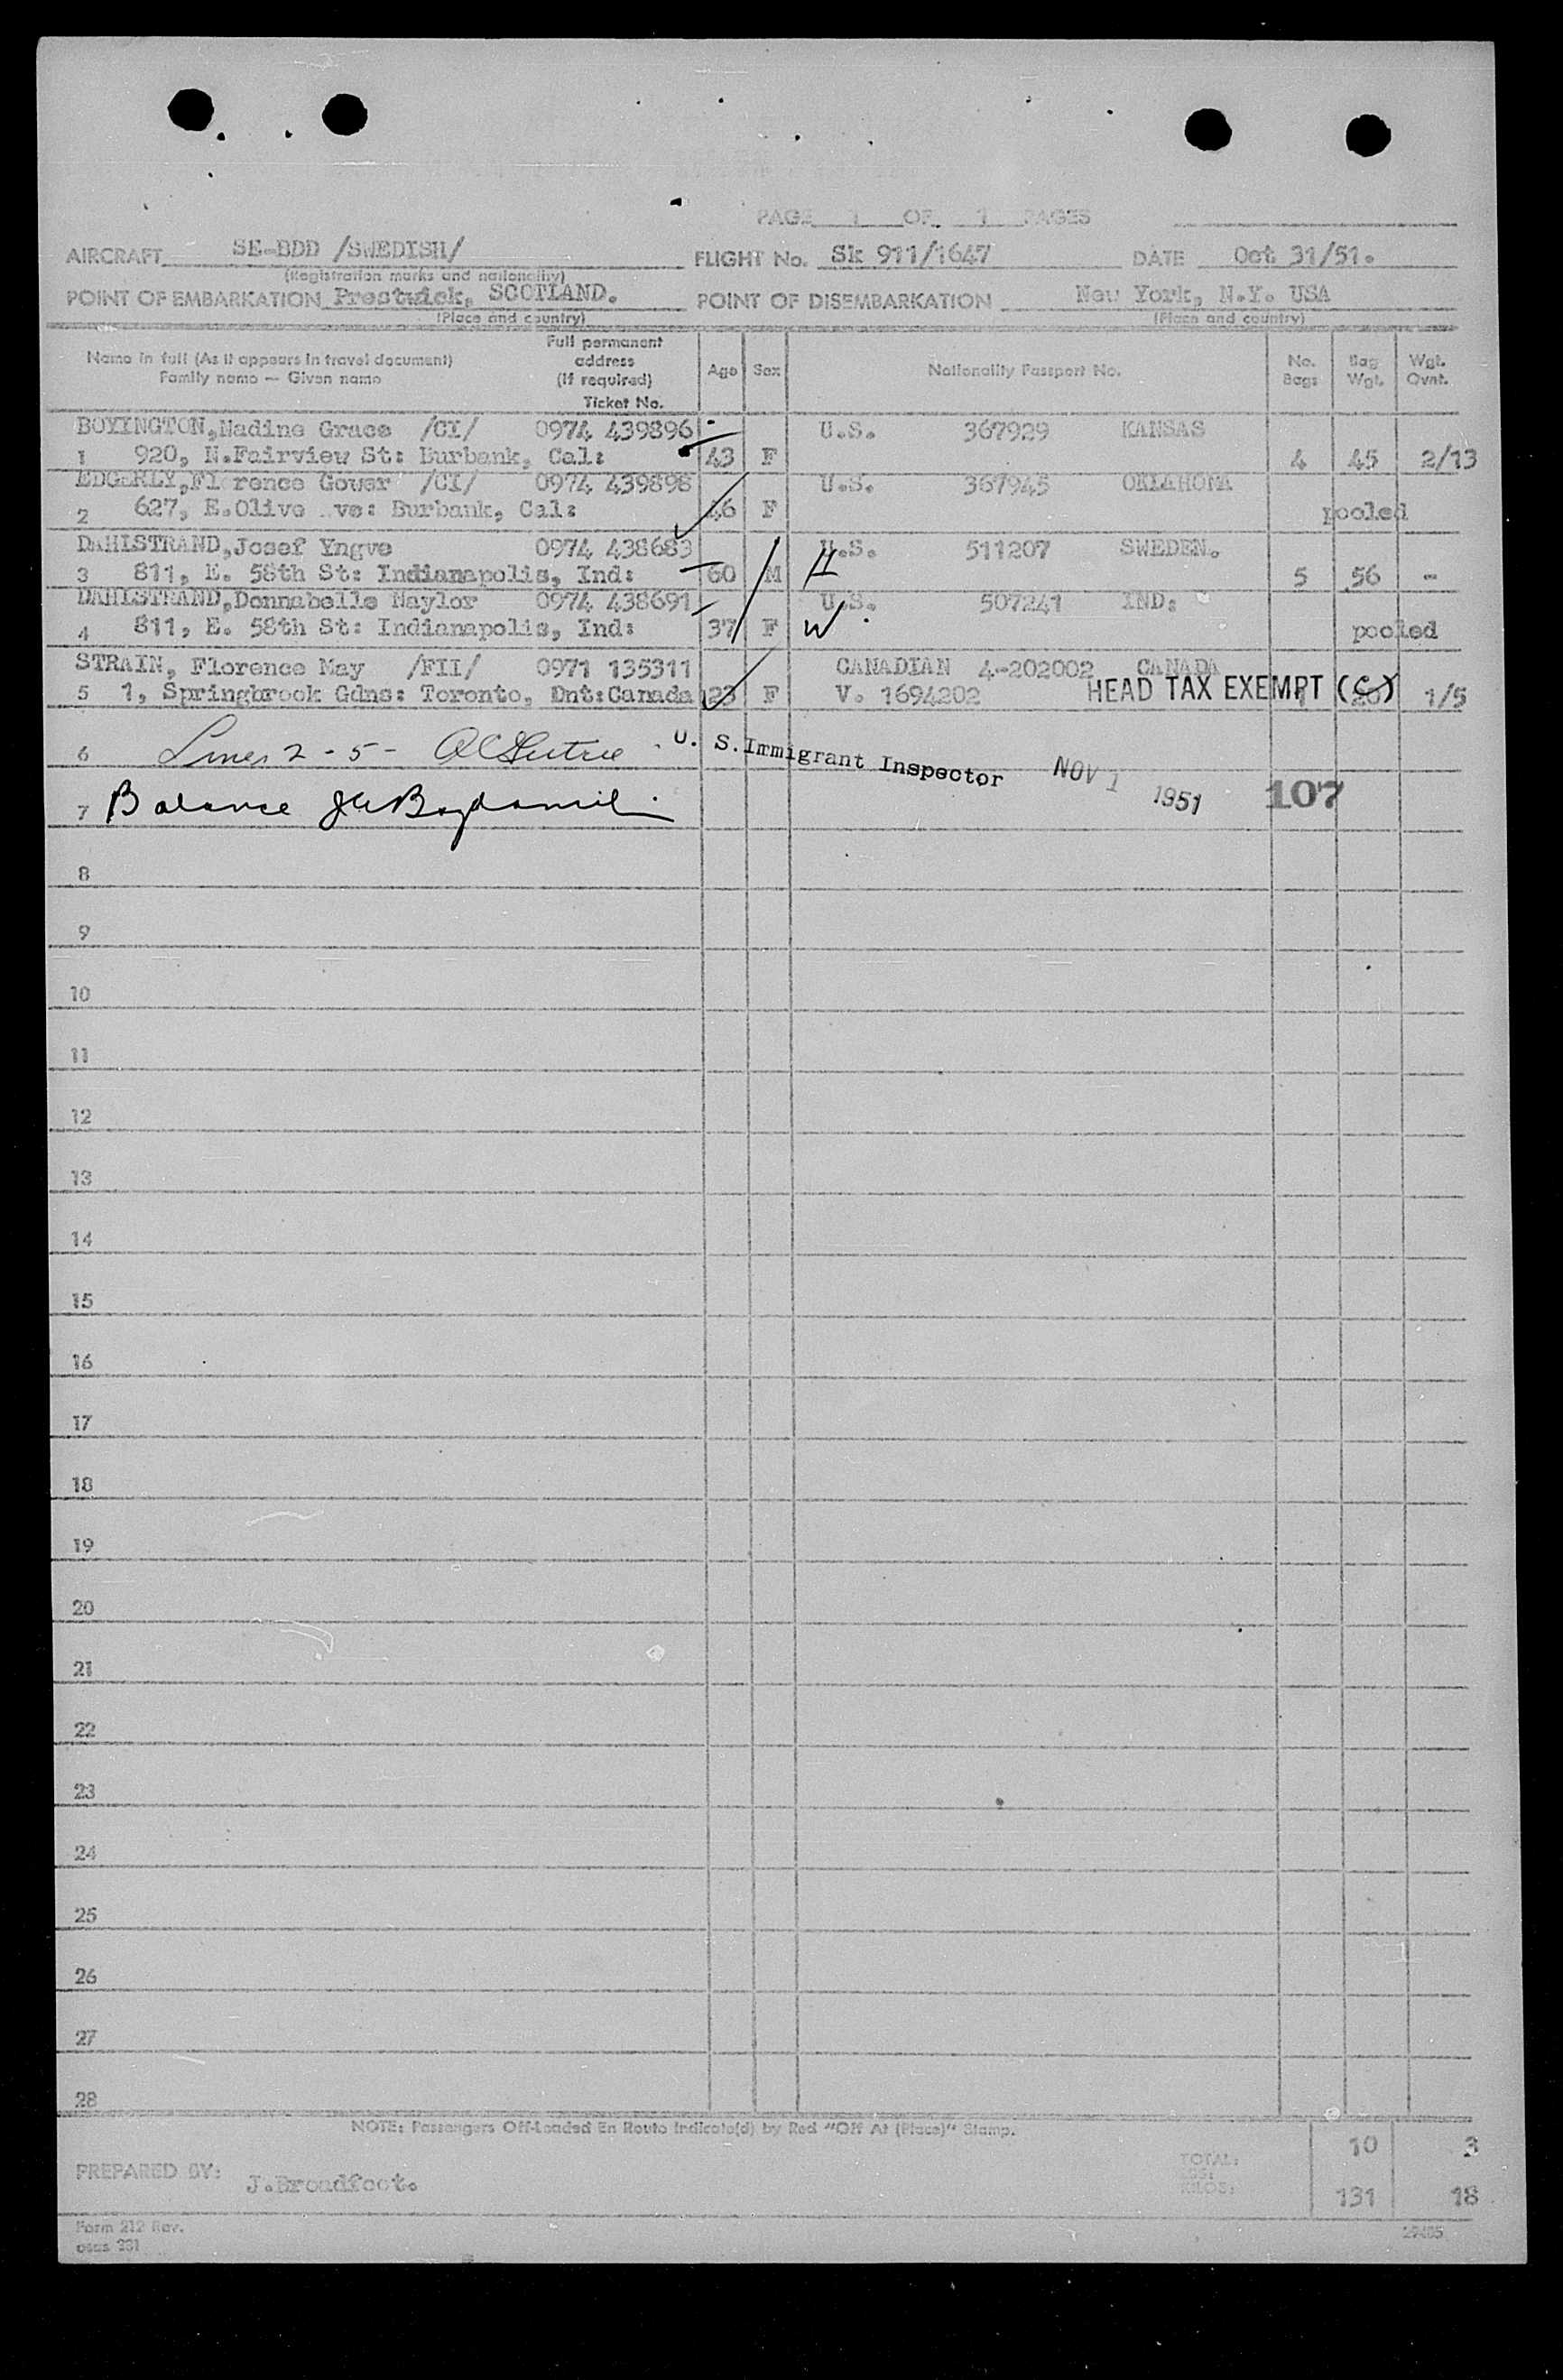 PAGE 1 OF 1 PAGES
AIRCRAFT SE-BDD /SWEDISH/ FLIGHT No. Sk 911/1647 DATE Oct 31/51.
(Registration marks and nationality)
POINT OF EMBARKATION Prestwick, SCOTLAND. POINT OF DISEMBARKATION New York, N.Y. USA
(Place and country) (Place and country)
Name in full (As it appears in travel document) Family name — Given name Full permanent address (If required) Ticket No. Age Sex Nationality Passport No. No. Bags Bag Wgt. Wgt. Ovnt.
BOYINGTON,Nadine Grace /CI/ 0974 439896 U.S. 367929 KANSAS
1 920, N.Fairview St: Burbank, Cal: 43 F 4 45 2/13
EDGERLY,Fl rence Gover /CI/ 0974 439898 U.S. 367945 OKLAHOMA
2 627, E.Olive ve: Burbank, Cal: 46 F pooled
DAHLSTRAND,Josef Yngve 0974 438683 U.S. 511207 SWEDEN.
3 811, E. 58th St: Indianapolis, Ind: 60 M H 5 56 -
DAHLSTRAND,Donnabelle Naylor 0974 438691 U.S. 507241 IND:
4 811, E. 58th St: Indianapolis, Ind: 37 F W pooled
STRAIN, Florence May /FII/ 0971 135311 CANADIAN 4-202002 CANADA
5 1, Springbrook Gdns: Toronto, Ont:Canada 23 F V. 1694202 HEAD TAX EXEMPT (C) 1/5
6 Lines 2 - 5 - U. S. Immigrant Inspector NOV 1 1951
7 Balance 107
8
9
10
11
12
13
14
15
16
17
18
19
20
21
22
23
24
25
26
27
28
NOTE: Passengers Off-Loaded En Route Indicate(d) by Red "Off At (Place)" Stamp.
TOTAL: 10 3
PREPARED BY: J.Broadfoot.
KILOS: 131 18
Form 212 Rev.